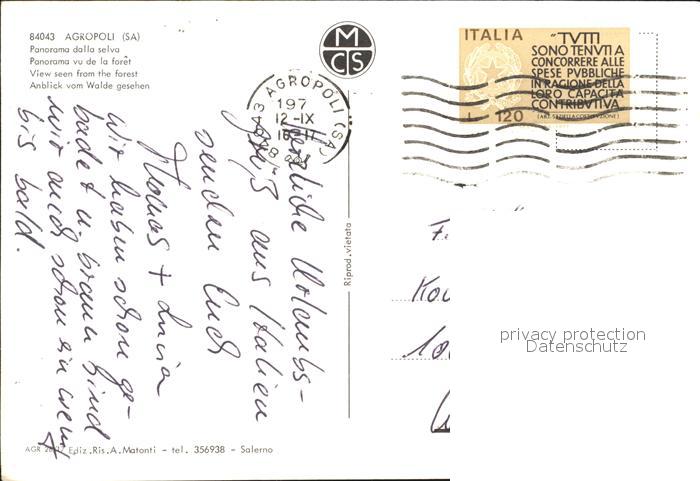 84043 AGROPOLI (SA)
Panorama dalla selva
Panorama vu de la forêt
View seen from the forest
Anblick vom Walde gesehen
M
CS
AGROPOLI (SA)
197
12-IX
16-17
ITALIA
"TVTTI
SONO TENVTI A
CONCORRERE ALLE
SPESE PVBBLICHE
IN RAGIONE DELLA
LORO CAPACITA
CONTRIBVTIVA
(ART. 53 DELLA COSTITUZIONE)
L. 120
Herzliche Urlaubs-
grüße aus Italien
senden Euch
+ Luisa
Wir haben schon ge-
badet u. braun sind
wir auch schon ein wenig
bis bald.
Riprod. vietata
privacy protection
Datenschutz
AGR Ediz.Ris.A.Matonti - tel. 356938 - Salerno